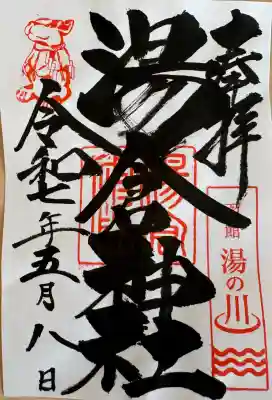 奉拝
函館 湯の川
湯倉神社
令和七年五月八日